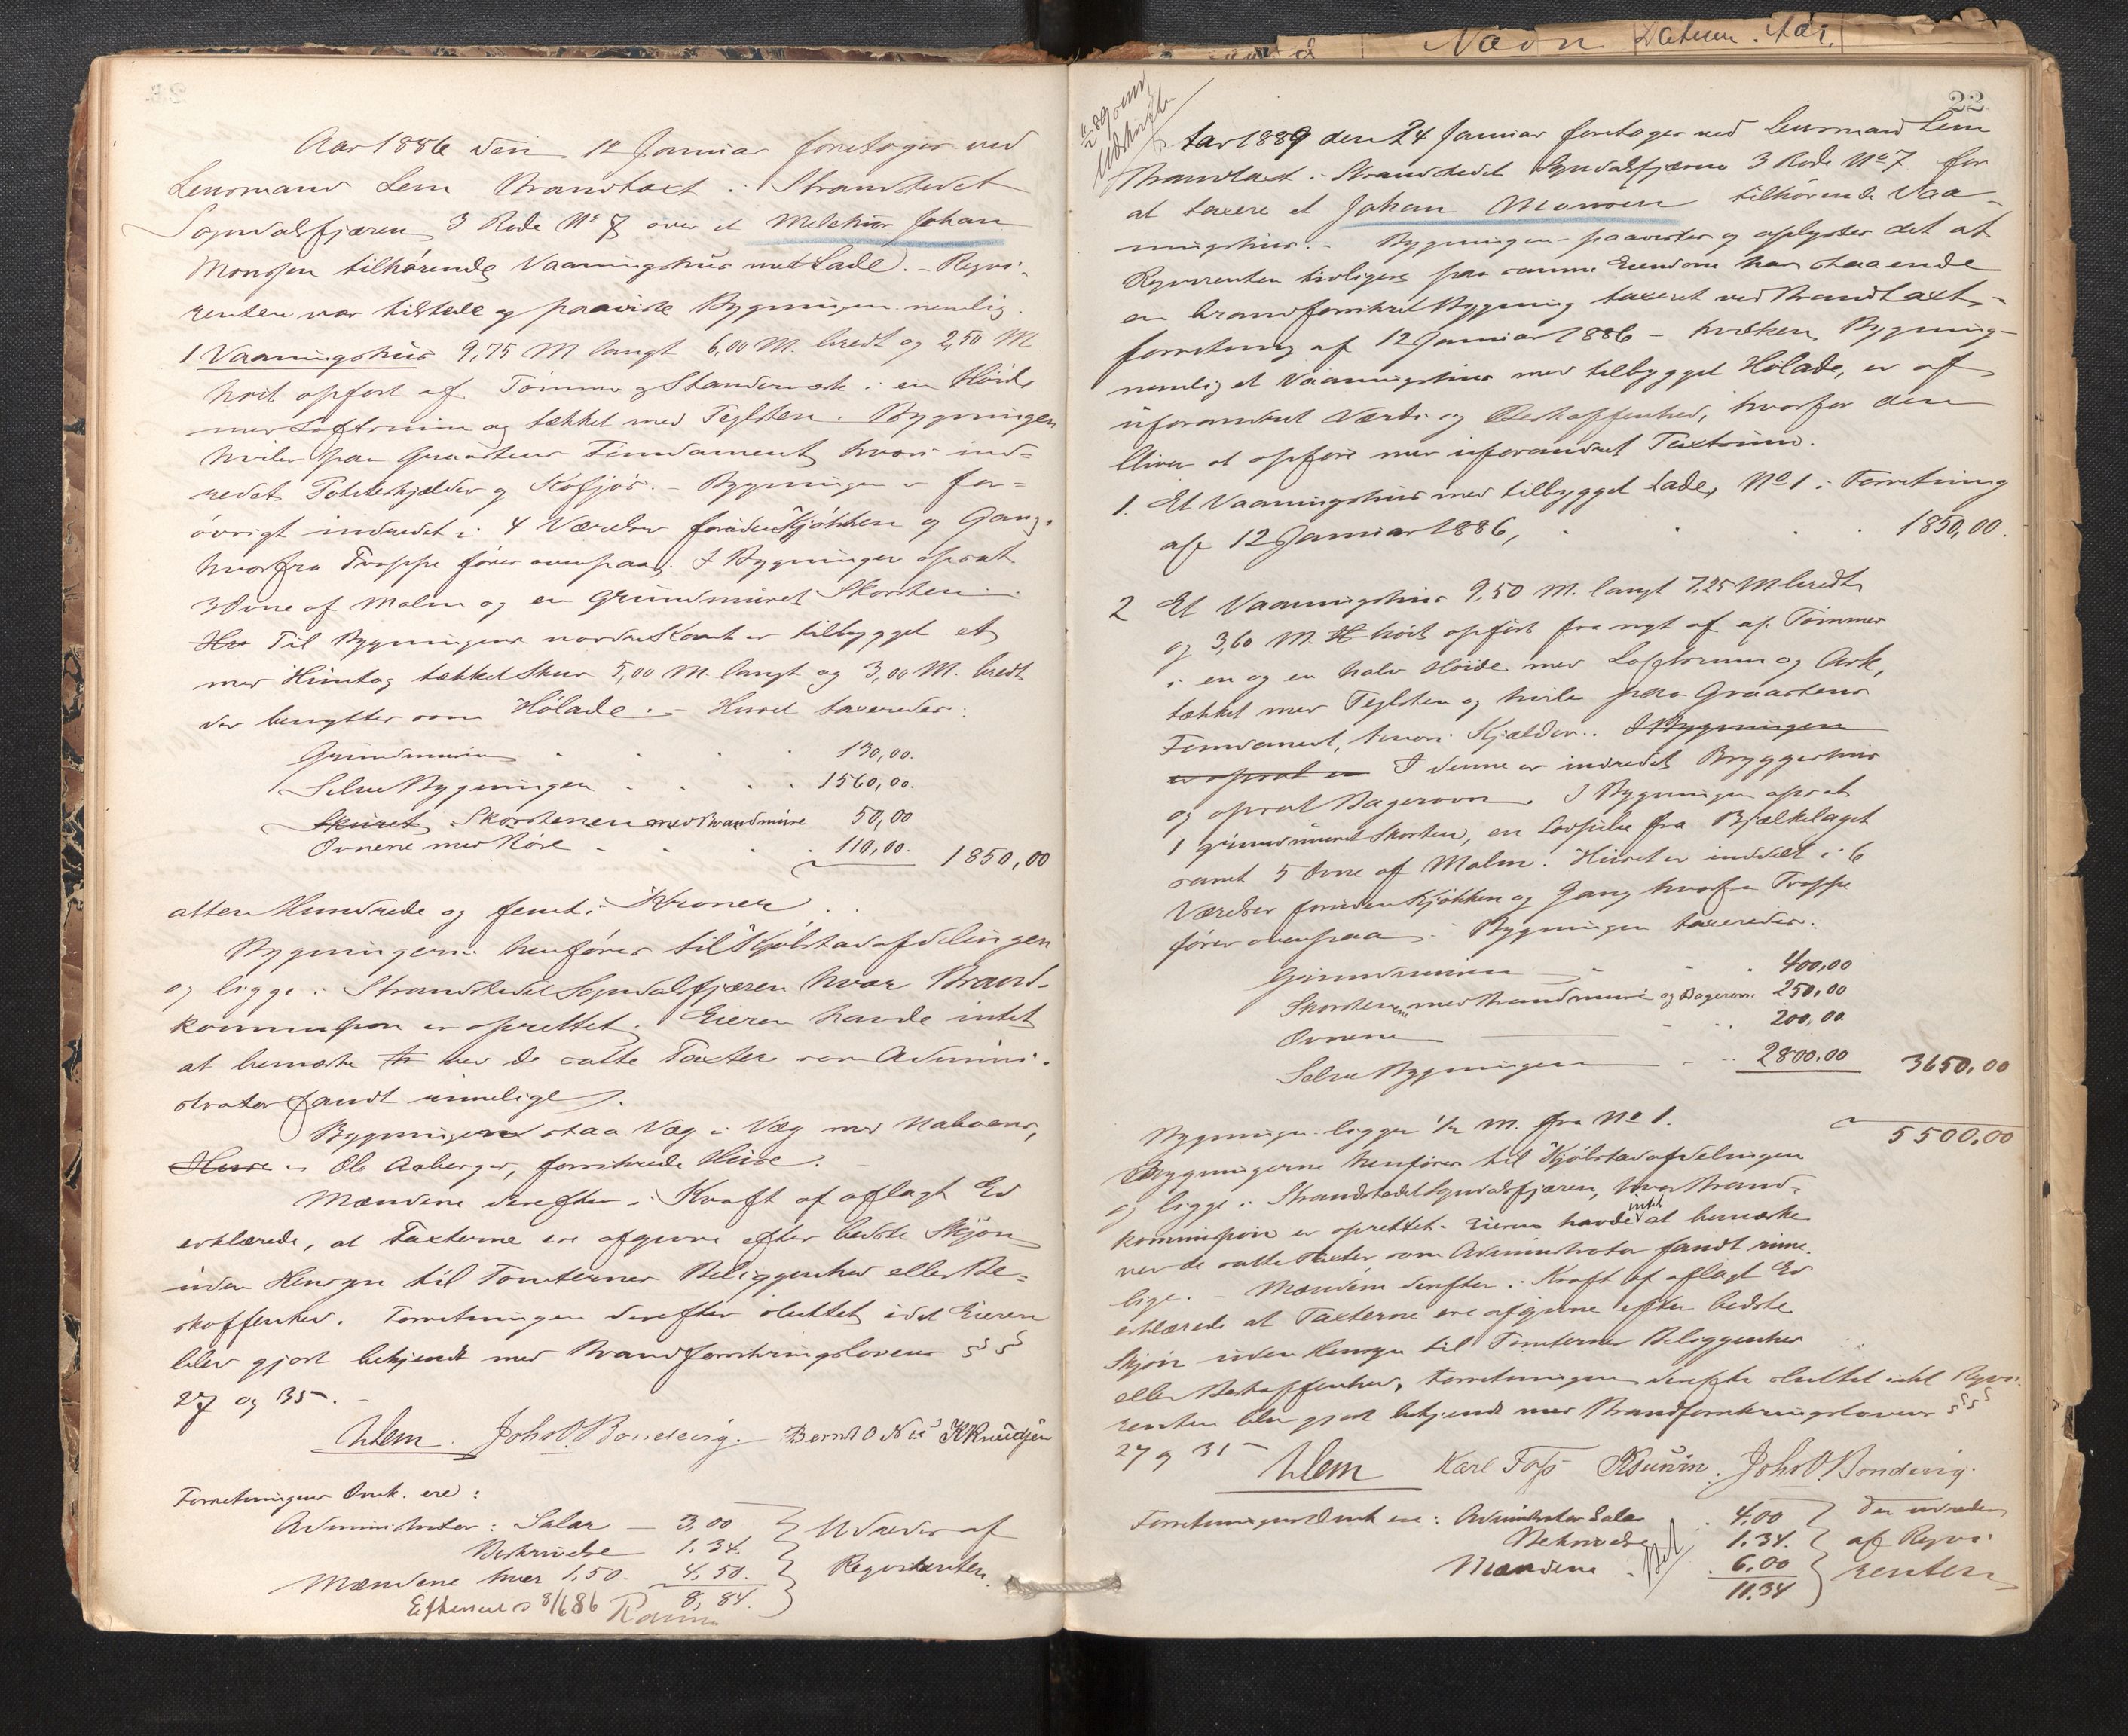 Navn Datum. Aar.
Aar 1886 den 12 Januar foretoges ved
Lensmand Lem Brandtaxt i Strandstedet
Sogndalsfjæren 3 Rode No 7 over et Melchior Johan
Monssen tilhørende Vaaningshus med Lade. – Reqvi-
renten var tilstede og paaviste Bygningen nemlig.
1 Vaaningshus 9,75 M langt 6,00 M. bredt og 2,50 M
høit opført af Tømmer og Stenderværk i en Høide
med Loftrum og tækket med Teglsten. Bygningen
hviler paa Graastens Fundament, hvori ind-
redet Potetkjælder og Kofjøs. – Bygningen er for-
øvrigt indredet i 4 Værelser foruden Kjøkken og Gang.
hvorfra Trappe fører ovenpaa. I Bygningen opsat
3 Ovne af Malm og en grundmuret Skorsten.
Hu Til Bygningens nordre Kant er tilbygget et
med Huntag tækket Skur 5,00 M. langt og 3,00 M. bredt
der benyttes som Hølade. – Huset taxeredes:
Grundmuren 130,00.
Selve Bygningen 1560,00.
Skuret Skorstenen med Brandmure 50,00
Ovnene med Rør 110,00. 1850,00
atten Hundrede og femti Kroner.
Bygningerne henføres til Kjøbstadafdelingen
og ligge i Strandstedet Sogndalsfjæren hvor Brand-
kommission er oprettet. Eieren havde intet
at bemærke ved de satte Taxter som Admini-
strator fandt rimelige.
Bygningerne staa Væg i Væg med Naboens,
Huse Ole Aaberges, forsikrede Huse.
Mændene derefter i Kraft af aflagt Ed
erklærede, at Taxterne ere afgivne efter bedste Skjøn
uden Hensyn til Tomternes Beliggenhed eller Be-
skaffenhed. Forretningen derefter sluttet idet Eieren
blev gjort bekjendt med Brandforsikringslovens §§
27 og 35. –
Lem. Joh. O. Bondevig. Bernt O K Knudsen
Forretningens Omk. ere:
Administrator: Salar – 3,00 Udredes af
Beskrivelse 1.34. Reqvirenten.
Mændene hver 1,50. 4,50.
8,84.
8/6 86
22
Udskrift
Aar 1889 den 24 Januar foretoges ved Lensmand Lem
Brandtaxt i Strandstedet Sogndalsfjæren 3 Rode No 7 for
at taxere et Johan Monsen tilhørende Vaa-
ningshus. – Bygningen paavistes og oplystes det at
Reqvirenten tidligere paa samme Eiendom har staaende
en brandforsikret Bygning taxeret ved Brandtaxt-
forretning af 12 Januar 1886 – hvilken Bygning-
nemlig et Vaaningshus med tilbygget Hølade, er af
uforandret Værdi og Beskaffenhed, hvorfor den
bliver at opføre med uforandret Taxtsum.
1. Et Vaaningshus med tilbygget Lade, No 1 i Forretning
af 12 Januar 1886, 1850,00.
2 Et Vaaningshus 9,50 M. langt 7,25 M bredt
og 3,60 M. H høit opført fra nyt af af Tømmer
i en og en halv Høide med Loftsrum og Ark,
tækket med Teglsten og hviler paa Graastens
Fundament, hvori Kjælder. I Bygningen
er opsat en I denne er indredet Bryggerhus
og opsat Bagerovn. I Bygningen opsat
1 grundmuret Skorsten, en Lovpibe fra Bjælkelaget
samt 5 Ovne af Malm. Huset er inddelt i 6
Værelser foruden Kjøkken og Gang hvorfra Trappe
fører ovenpaa. Bygningen taxeredes:
Grundmuren 400,00
Skorstenene med Brandmure og Bagerovn 250,00
Ovnene 200,00
Selve Bygningen 2800.00 3650,00
Bygningen ligger 1/2 M. fra No 1. 5500,00
Bygningerne henføres til Kjøbstadafdelingen
og ligge i Strandstedet Sogndalsfjæren, hvor Brand-
kommission er oprettet. Eieren havde intet at bemærke
ved de satte Taxter som Administrator fandt rime-
lige. – Mændene derefter i Kraft af aflagt Ed
erklærede at Taxterne ere afgivne efter bedste
Skjøn uden Hensyn til Tomternes Beliggenhed
eller Beskaffenhed, Forretningen derefter sluttet idet Reqvi-
renten blev gjort bekjendt med Brandforsikringslovens §§§
27 og 35
Lem Karl Foss Joh. O. Bondevig.
Forretningens Omk ere: Administrator Salar 4,00 der udredes
Beskrivelse 1.34. af Reqvi-
Mændene 6,00 renten
11,34